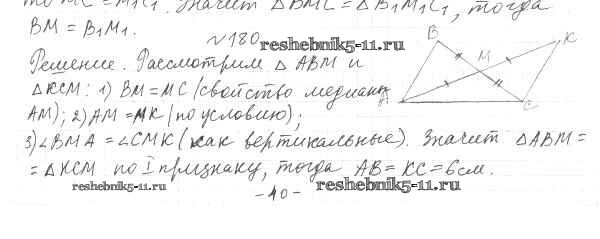 то MC = M₁C₁. Значит △BMC = △B₁M₁C₁, тогда
BM = B₁M₁.
№180
reshebnik5-11.ru
Решение. Рассмотрим △ABM и
△KCM: 1) BM = MC (свойство медианы
AM); 2) AM = MK (по условию);
3) ∠BMA = ∠CMK (как вертикальные). Значит △ABM =
= △KCM по I признаку, тогда AB = KC = 6см.
reshebnik5-11.ru
-40-
reshebnik5-11.ru
B
K
M
A
C